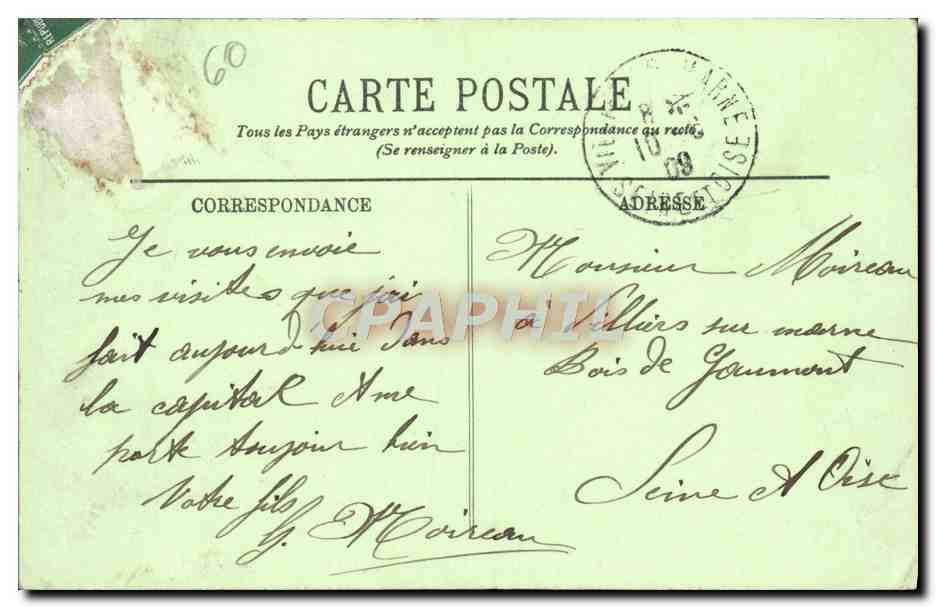 60
CARTE POSTALE
Tous les Pays étrangers n'acceptent pas la Correspondance au recto
(Se renseigner à la Poste).
MARNE
10
09
SEINE ET OISE
CORRESPONDANCE
ADRESSE
Je vous envoie
mes visites que j'ai
fait aujourd'hui dans
la capital et me
porte toujour bien
Votre fils
G. Moireau
Monsieur Moireau
à Villiers sur marne
Bois de Gaumont
Seine et Oise
CPAPHIL